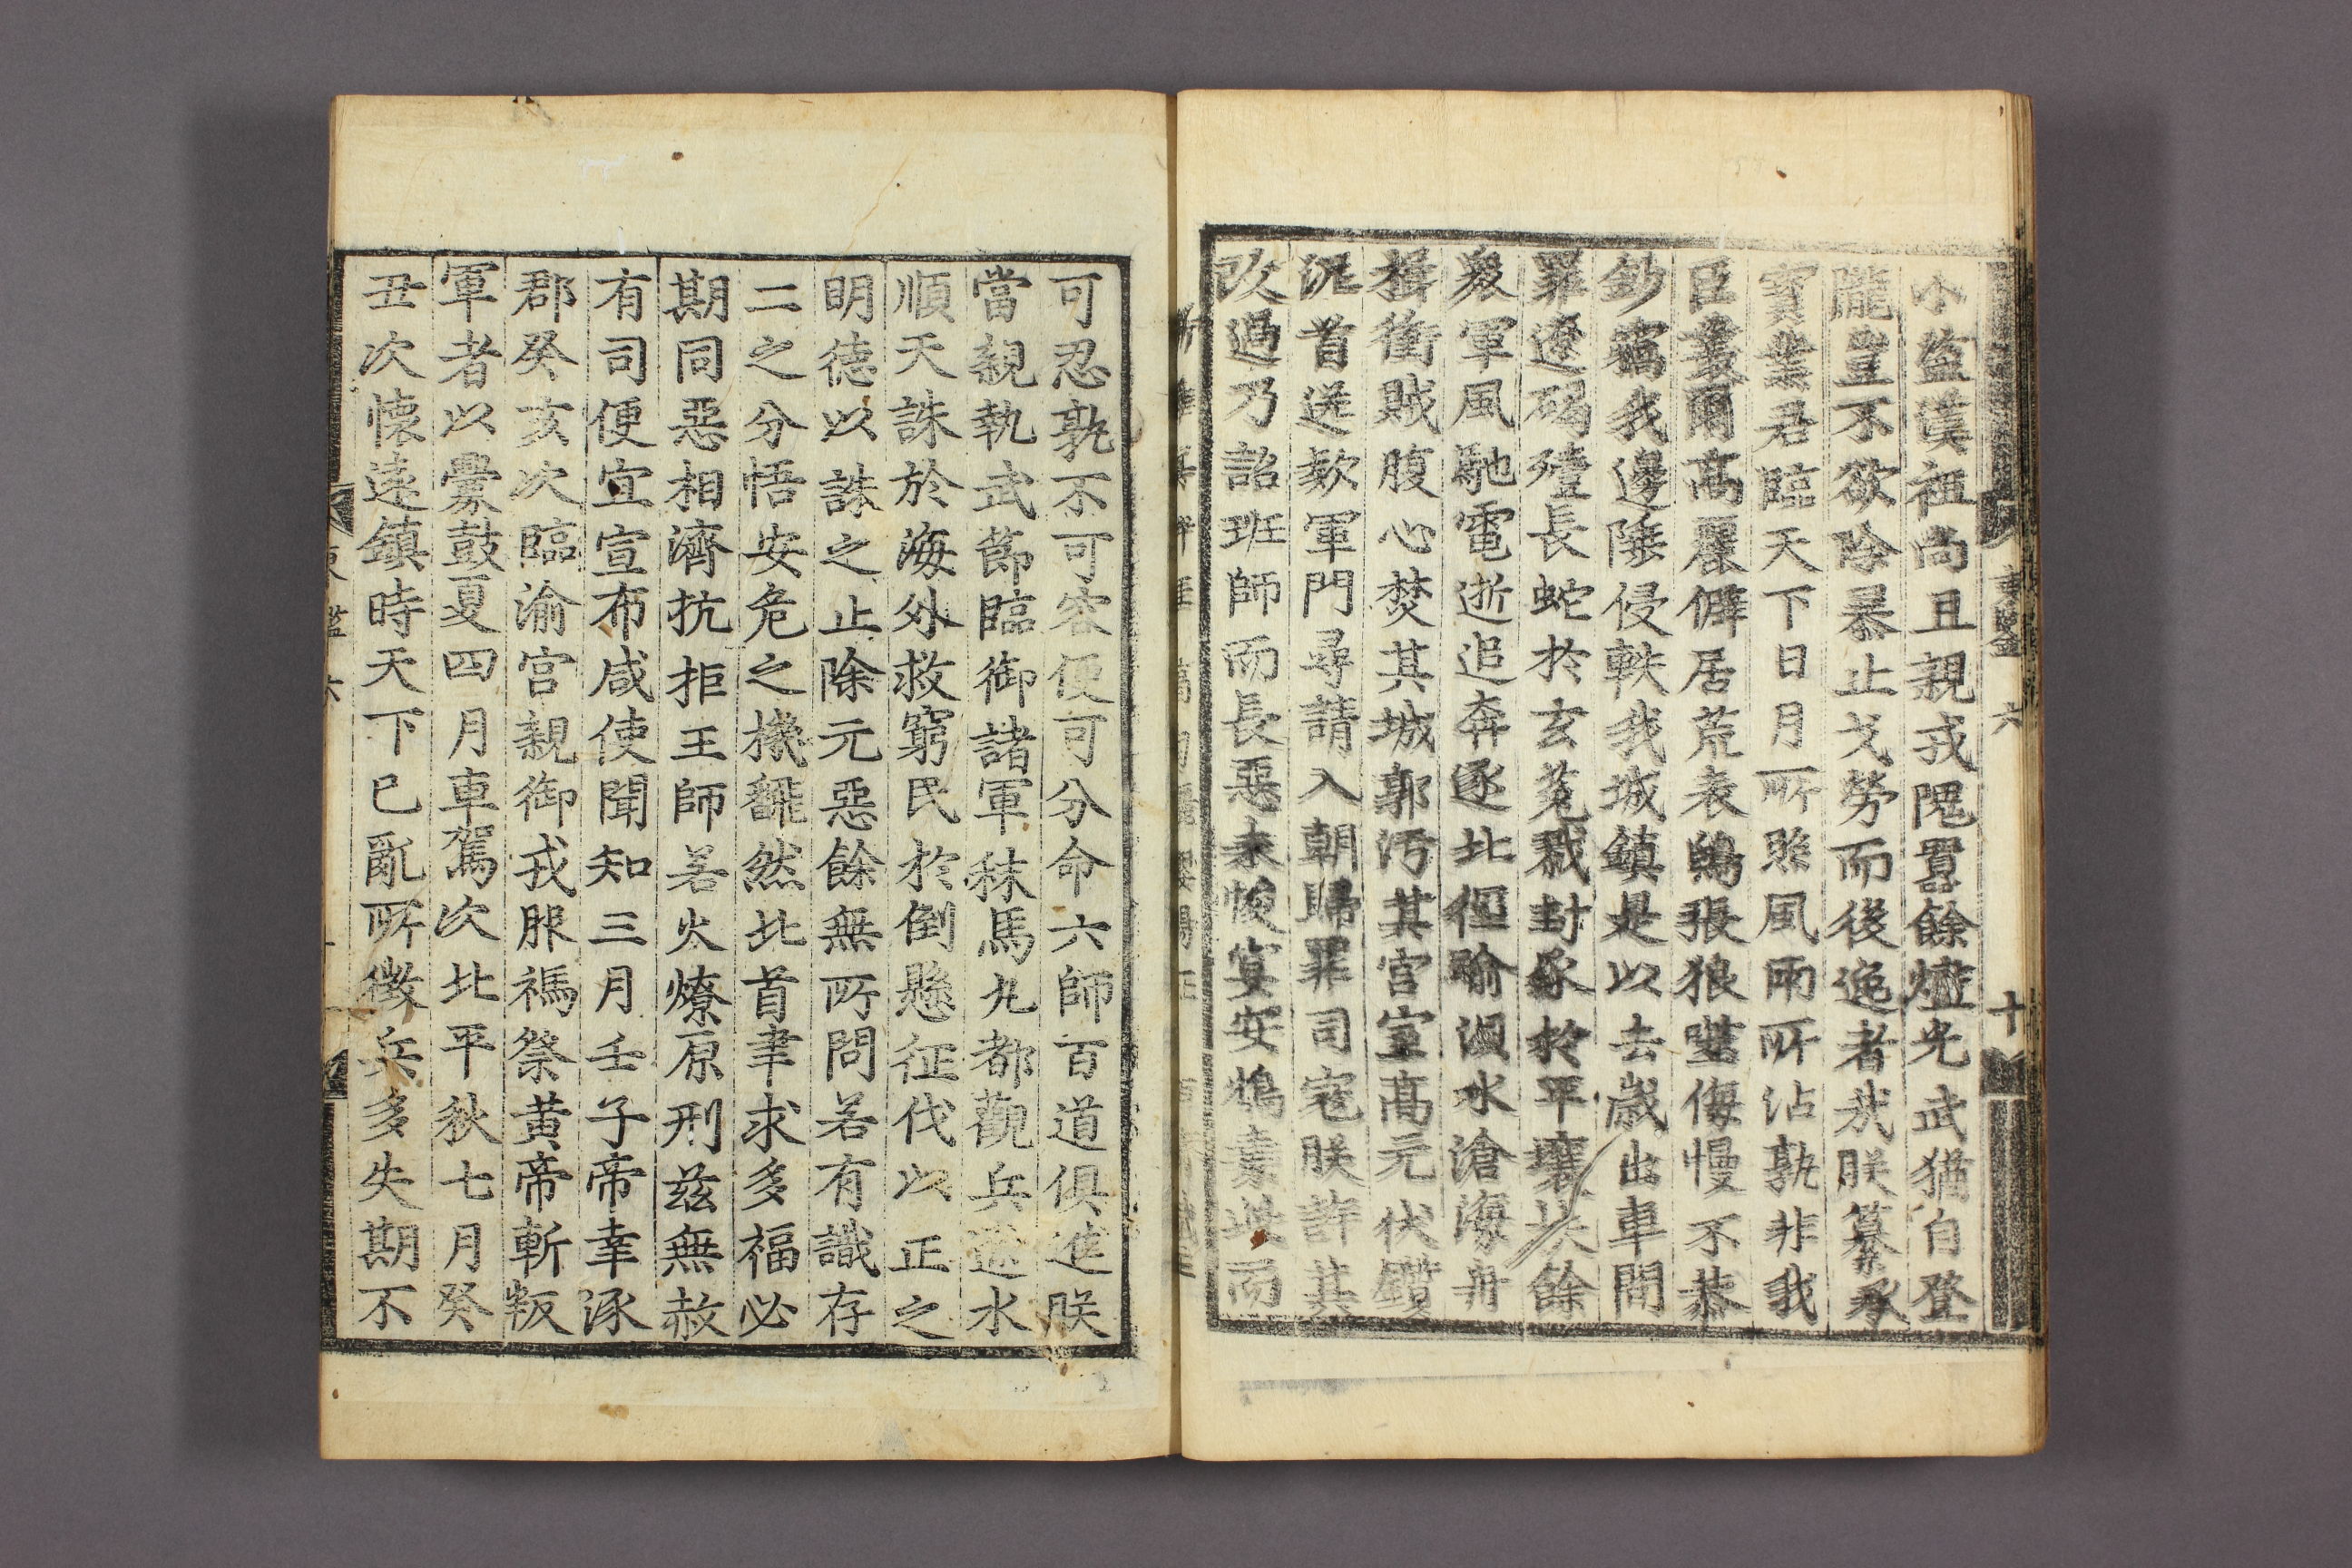 東鑑 六 十
小盜漢祖尚且親戎隗囂餘燼光武猶自登
隴豈不欲除暴止戈勞而後逸者㢤朕纂承
寶業君臨天下日月所照風雨所沾孰非我
臣蕞爾髙麗僻居荒表鴟張狼噬侮慢不恭
鈔竊我邊陲侵軼我城鎮是以去歲出車問
罪遼碣殪長蛇於玄菟戮封豕於平壤扶餘
衆軍風馳電逝追奔逐北徑踰浿水滄海舟
楫衝賊腹心焚其城郭汚其宮室髙元伏鑕
泥首送款軍門尋請入朝歸罪司寇朕許其
改過乃詔班師而長惡未悛宴安鴆毒此而
可忍孰不可容便可分命六師百道俱進朕
當親執武節臨御諸軍秣馬丸都觀兵遼水
順天誅於海外救窮民於倒懸征伐以正之
明德以誅之止除元惡餘無所問若有識存
亡之分悟安危之機飜然北首聿求多福必
期同惡相濟抗拒王師若火燎原刑兹無赦
有司便宜宣布咸使聞知三月壬子帝幸涿
郡癸亥次臨渝宮親御戎服禡祭黃帝斬叛
軍者以釁鼓夏四月車駕次北平秋七月癸
丑次懷遠鎮時天下已亂所徵兵多失期不
東鑑 六